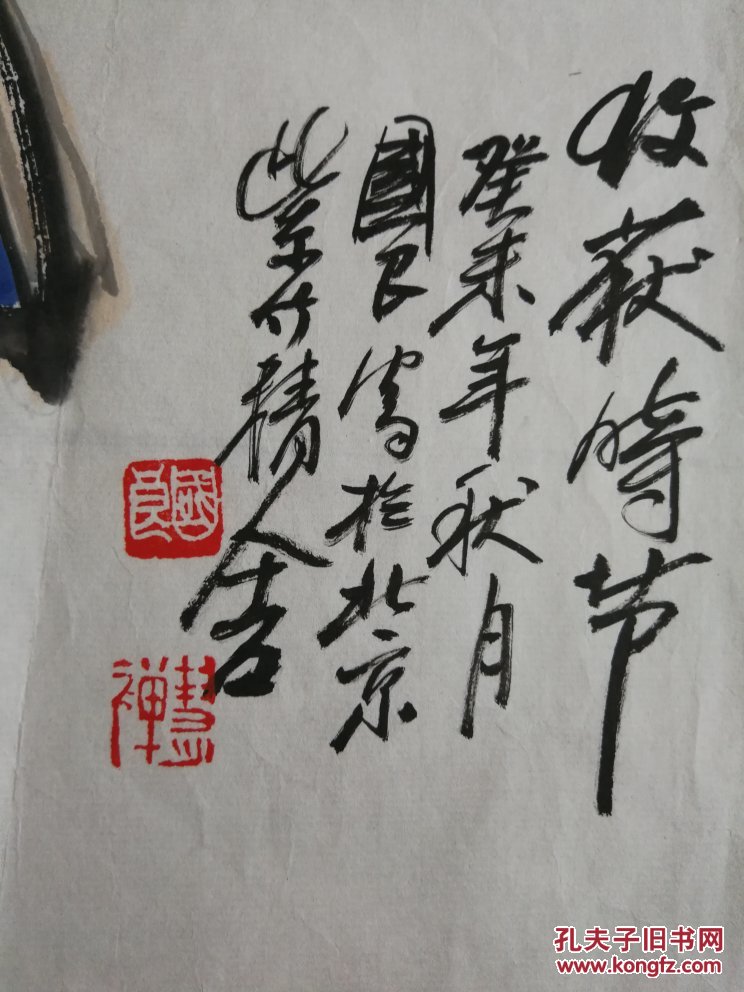 收获時节
癸未年秋月
國良寫於北京
紫竹精舍
國良
慧禅
孔夫子旧书网
www.kongfz.com